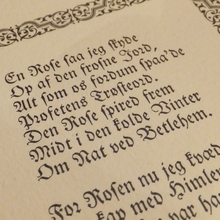 En Rose saa jeg skyde
Op af den frosne Jord,
Alt som os fordum spaa'de
Profetens Trosteord.
Den Rose spired frem
Midt i den kolde Vinter
Om Nat ved Betlehem.
For Rosen nu jeg kvad
skap med Himlen
var har